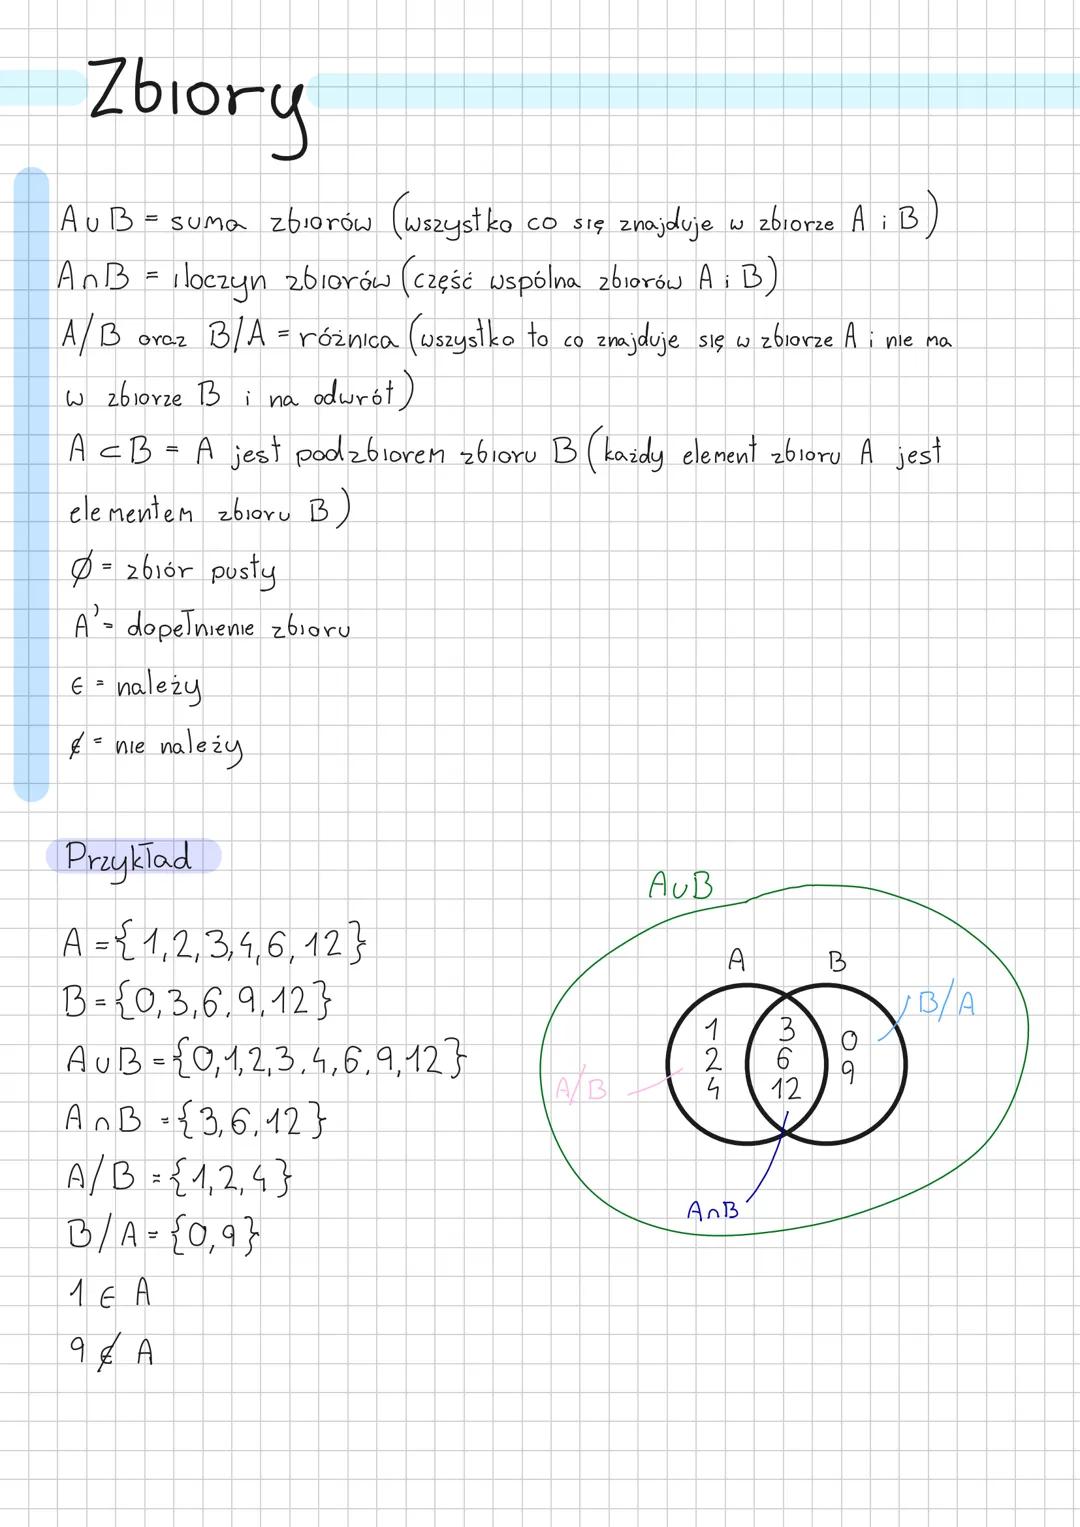 Zbiory
A∪B = suma zbiorów (wszystko co się znajduje w zbiorze A i B)
A∩B = iloczyn zbiorów (część wspólna zbiorów A i B)
A/B oraz B/A = różnica (wszystko to co znajduje się w zbiorze A i nie ma
w zbiorze B i na odwrót)
A ⊂ B = A jest podzbiorem zbioru B (każdy element zbioru A jest
elementem zbioru B)
Ø = zbiór pusty
A' = dopełnienie zbioru
∈ = należy
∉ = nie należy
Przykład
A = {1,2,3,4,6,12}
B = {0,3,6,9,12}
A∪B = {0,1,2,3,4,6,9,12}
A∩B = {3,6,12}
A/B = {1,2,4}
B/A = {0,9}
1 ∈ A
9 ∉ A
A∪B
A B
B/A
1 3 0
2 6 9
4 12
A/B
A∩B